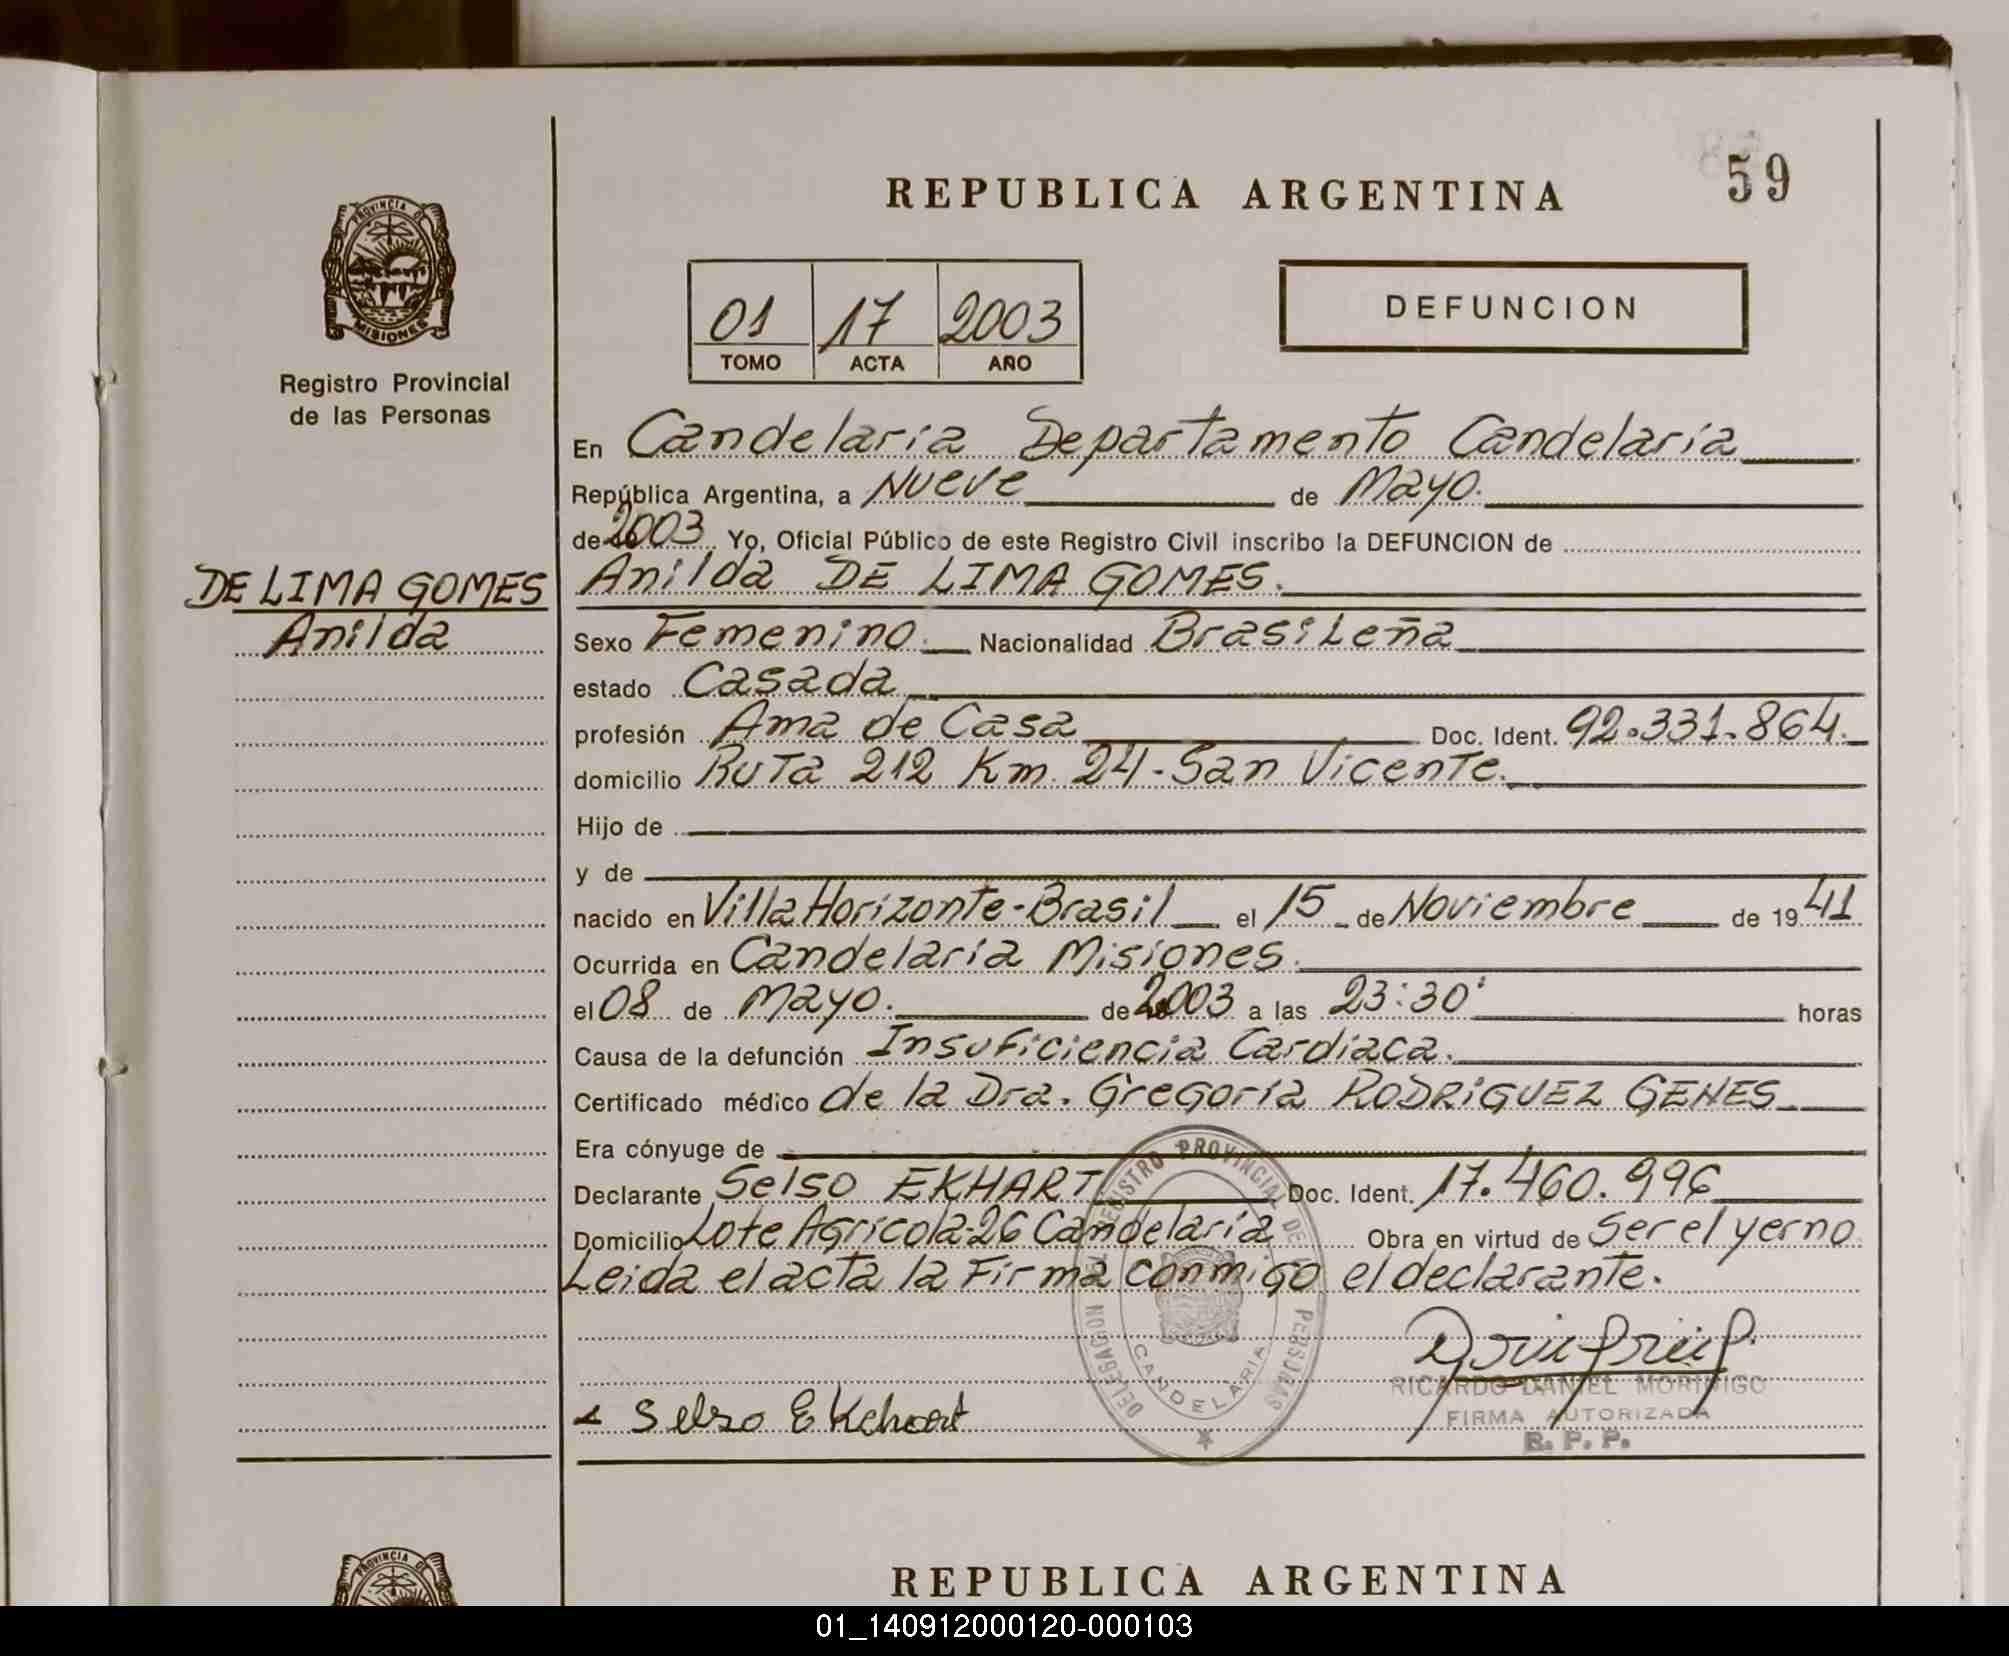 59
REPUBLICA ARGENTINA
PROVINCIA DE
MISIONES
Registro Provincial
de las Personas
01 17 2003
TOMO ACTA AÑO
DEFUNCION
En Candelaria Departamento Candelaria
República Argentina, a Nueve de Mayo.
de 2003 Yo, Oficial Público de este Registro Civil inscribo la DEFUNCION de
DE LIMA GOMES
Anilda
Anilda DE LIMA GOMES.
Sexo Femenino. Nacionalidad Brasileña
estado Casada
profesión Ama de Casa Doc. Ident. 92.331.864.
domicilio Ruta 212 Km. 24-San Vicente.
Hijo de
y de
nacido en Villa Horizonte-Brasil el 15 de Noviembre de 1941
Ocurrida en Candelaria Misiones.
el 08 de Mayo. de 2003 a las 23:30' horas
Causa de la defunción Insuficiencia Cardiaca.
Certificado médico de la Dra. Gregoria RODRIGUEZ GENES.
Era cónyuge de
Declarante Selso EKHART Doc. Ident. 17.460.996
Domicilio Lote Agricola-26 Candelaria Obra en virtud de Ser el yerno
Leida el acta la Firma conmigo el declarante.
DELEGACION DEL REGISTRO PROVINCIAL DE LAS PERSONAS
CANDELARIA
Selso EKchart
RICARDO DANIEL MORINIGO
FIRMA AUTORIZADA
R. P. P.
PROVINCIA DE
REPUBLICA ARGENTINA
01_140912000120-000103